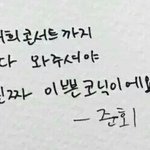 저희콘서트까지
다 와주셔야
진짜 이쁜코닉이에요
- 준회